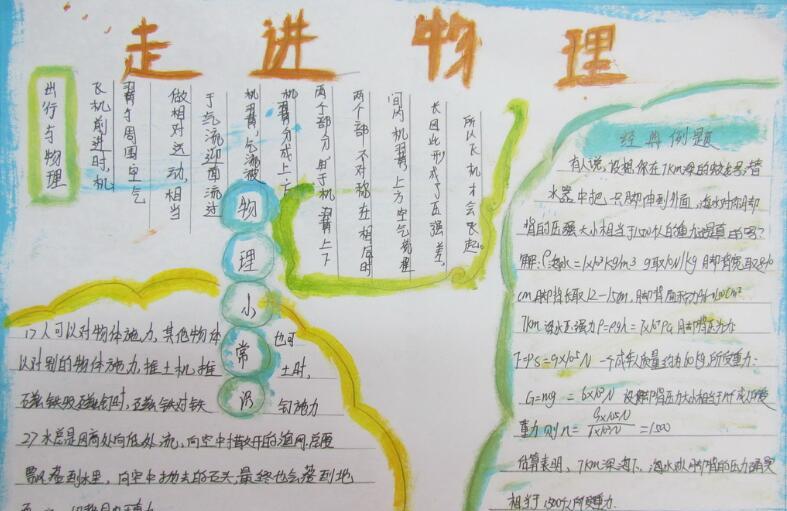 走进物理
出行与物理
飞机前进时，机
翼与周围空气
做相对运动，相当
于气流迎面流过
机翼，气流被
机翼分成上下
两个部分，由于机翼上下
两个部 不对称在相同时
间内机翼上方空气流程
长因此形成了压强差，
所以飞机才会飞起。
物理小常识
1、人可以对物体施力，其他物体也可
以对别的物体施力，推土机推土时，
磁铁吸磁钉时，磁铁对铁钉施力
2、水总是由高处向低处流，向空中撒开的渔网
落到水里，向空中抛去的石头，最终也会落到地
经典例题
有人说，设想你在7km深的蛟龙号潜
水器中把一只脚伸到外面，海水对你脚
背的压强大小相当于1500个人的重力，真的吗？
解：ρ海水=1×10³kg/m³ g取10N/kg 脚背宽取
cm，脚背长取12-15cm，脚背面积
7km深水压强力P=ρgh=7×10⁷Pa 脚背压力为
F=PS=9×10⁵N 一个成年人质量约为60kg，所受重力：
G=mg=6×10²N 设脚背压力大小相当于n个成人的
重力 则n=9×10⁵N/6×10²N=1500
估算表明，7km深海下，海水对脚背的压力确实
相当于1500个人所受重力.